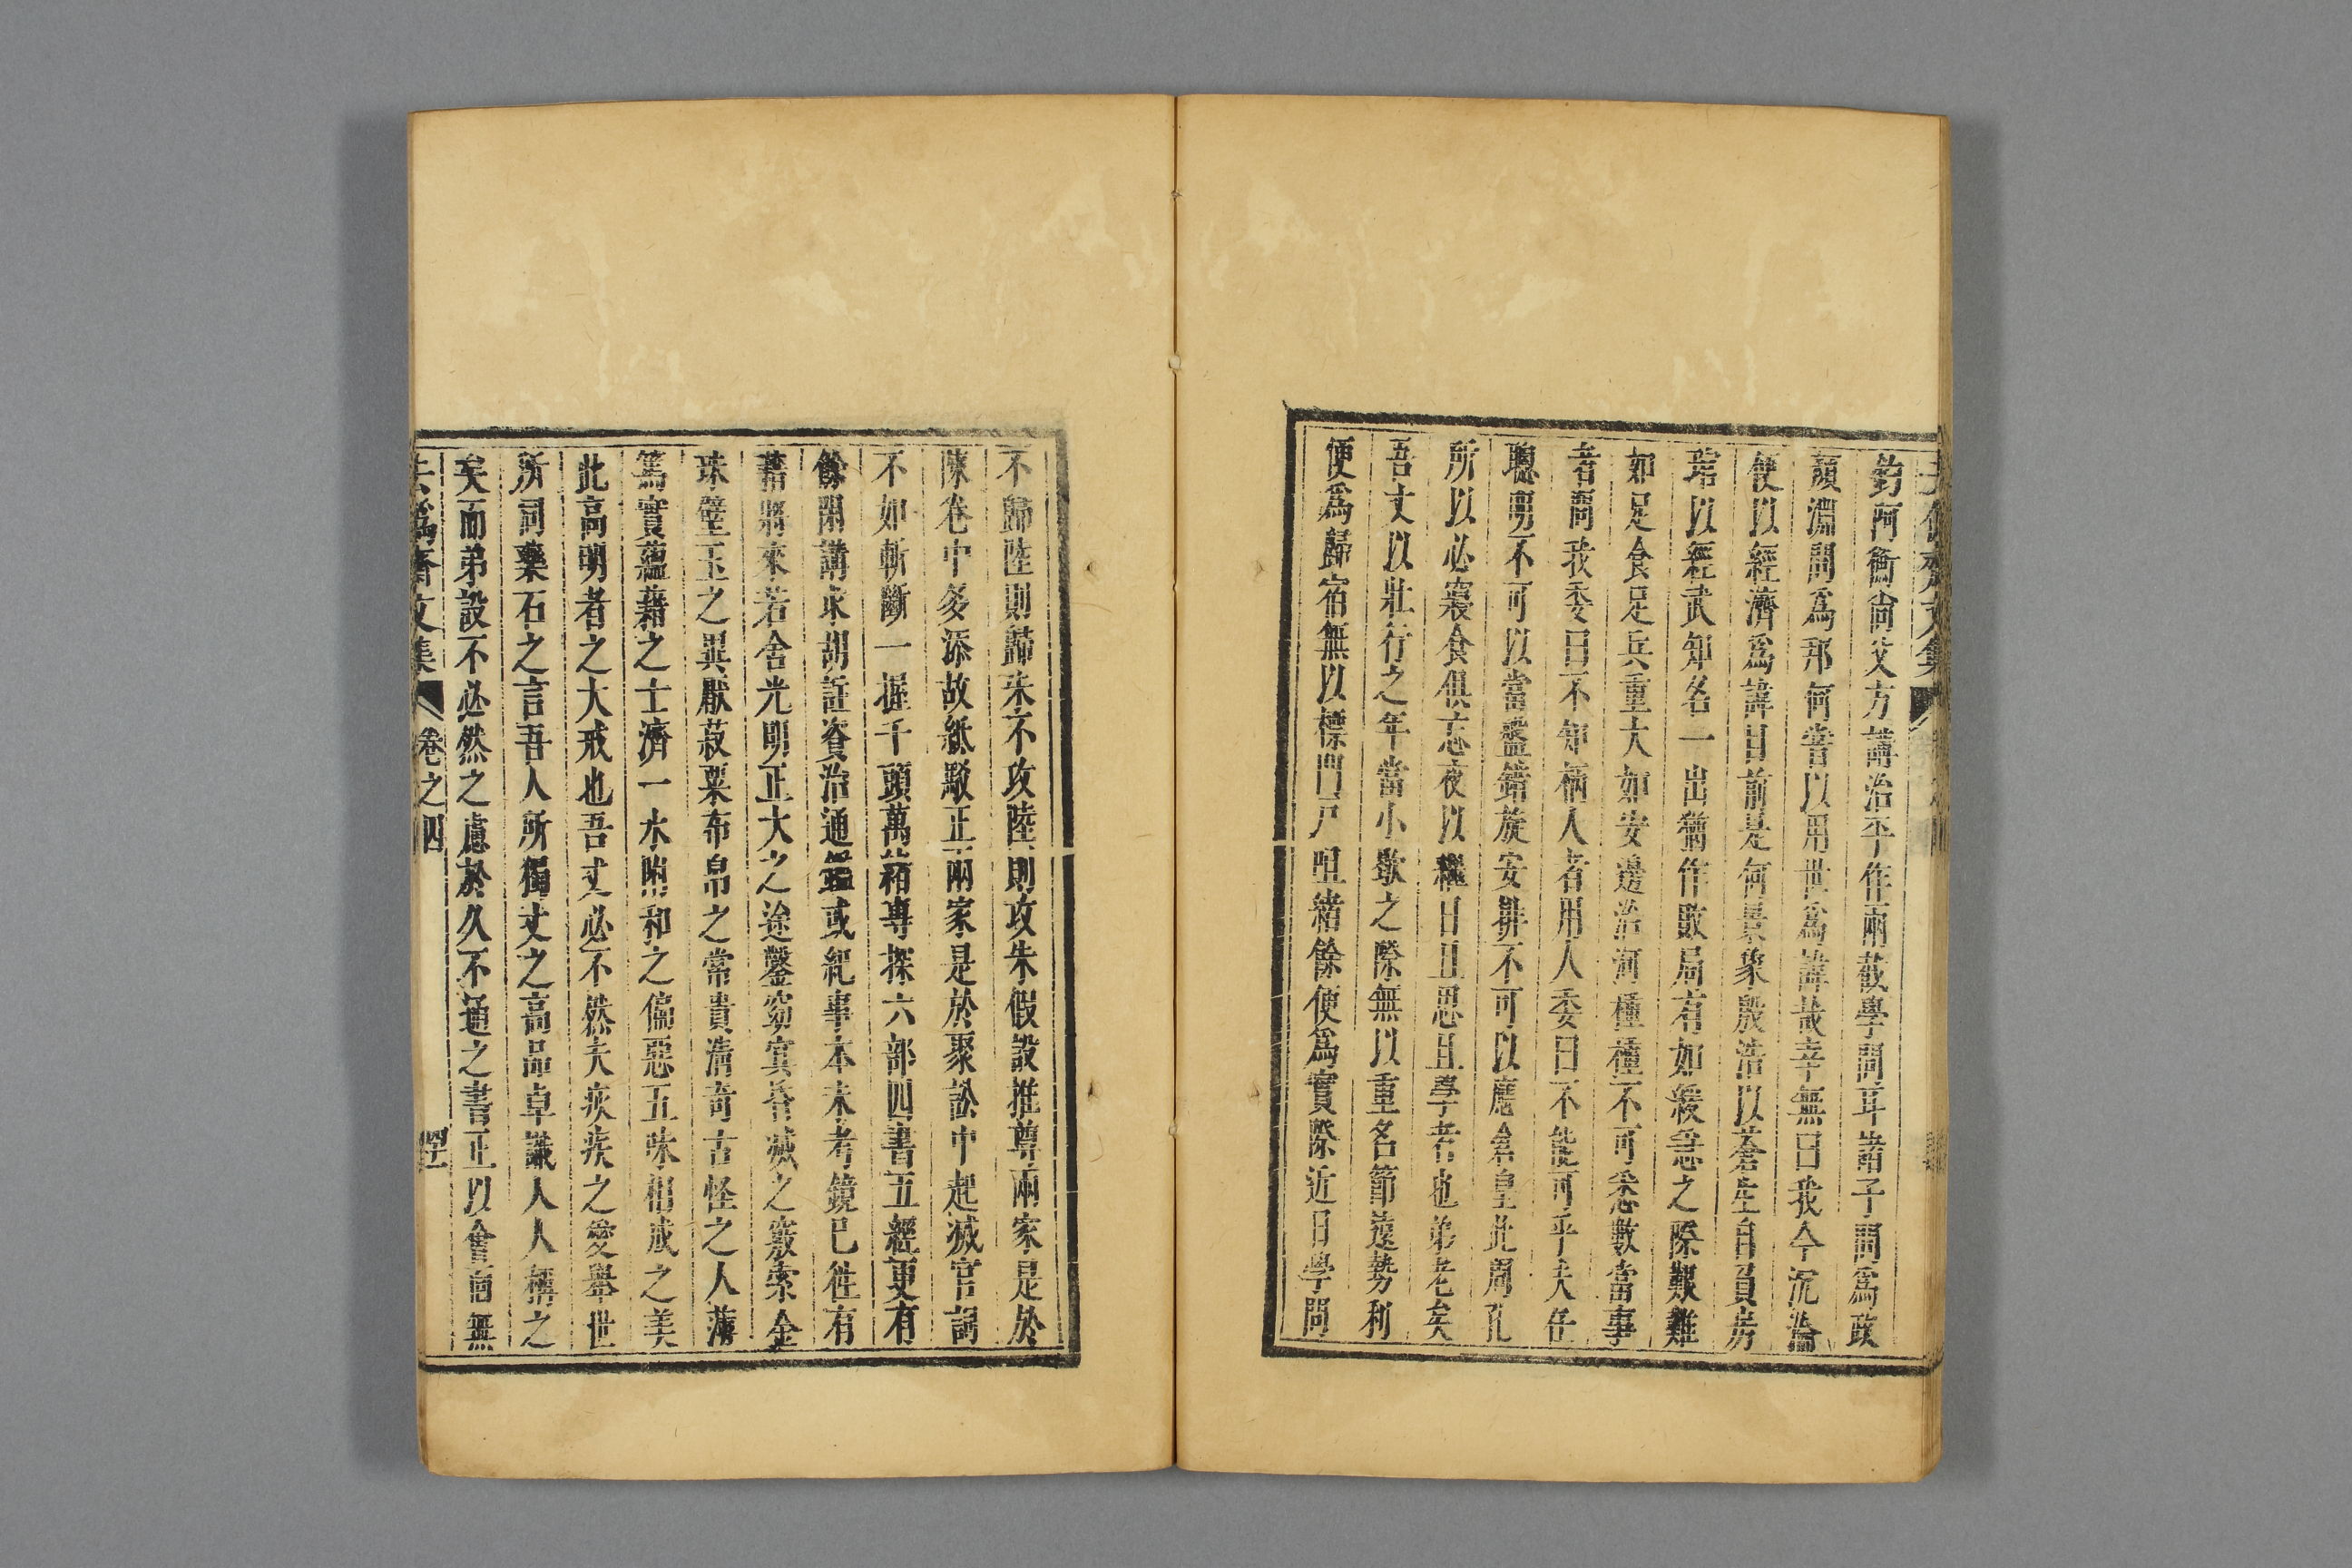 釣阿衡尙父方講治平作兩截學問耳諸子問爲政
顏淵問爲邦何嘗以用世爲諱哉幸無曰我今沉淪
便以經濟爲諱目前是何景象殷浩以蒼生自負房
琯以經武知名一出猶作敗局有如緩急之際艱難
如足食足兵重大如安邊治河種種不可悉數當事
者問我委曰不知柄人者用人委曰不能可乎夫任
聰明不可以當盤錯旋安排不可以應倉皇此周孔
所以必寢食俱忘夜以繼日且思且學者也弟老矣
吾丈以壯行之年當小歇之際無以重名節遠勢利
便爲歸宿無以標門戸咀緒餘便爲實際近日學問
不歸陸則歸朱不攻陸則攻朱假設推尊兩家是於
陳卷中多添故紙駁正兩家是於聚訟中起滅官詞
不如斬斷一握千頭萬緒專探六部四書五經更有
餘閑講求胡註資治通鑑或紀事本末考鏡已徃有
藉將來若舍光明正大之途鑿窈冥昏滅之竅索金
珠璧玉之異厭菽粟布帛之常貴清奇古怪之人薄
篤實蘊藉之士濟一水附和之偏惡五味相成之美
此高明者之大戒也吾丈必不然夫疢疾之愛舉世
所同藥石之言吾人所獨丈之高品卓識人人稱之
矣而弟設不必然之慮於久不通之書正以會面無
爲齋文集 卷之四